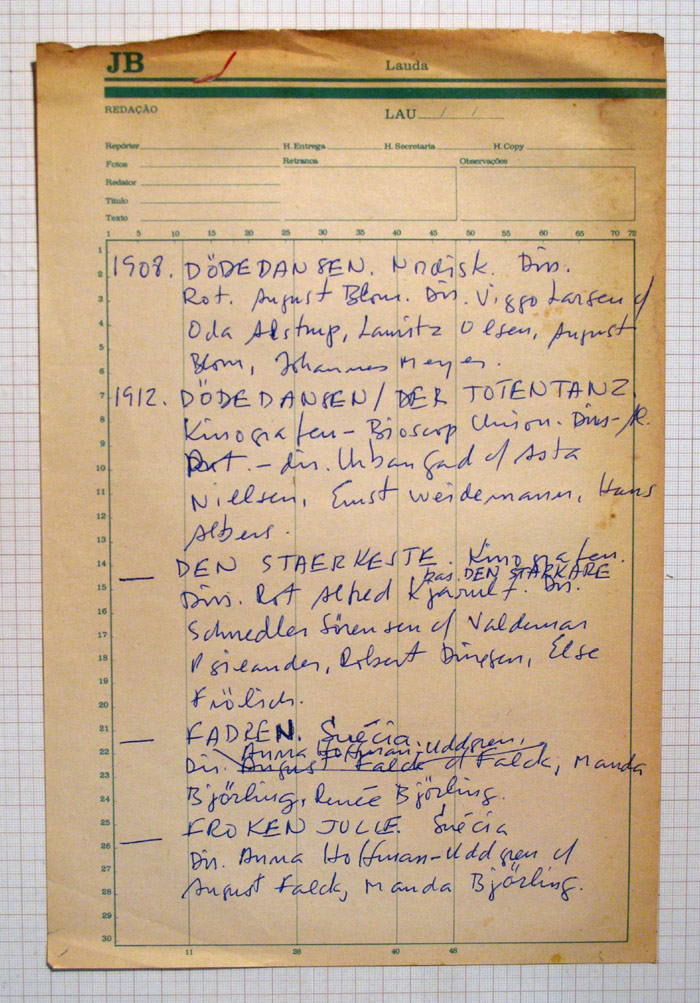 JB Lauda
REDAÇÃO
LAU / /
Repórter H. Entrega H. Secretaria H. Copy
Fotos Retranca Observações
Redator
Título
Texto
1 5 10 15 20 25 30 35 40 45 50 55 60 65 70 72
1
2
3
4
5
6
7
8
9
10
11
12
13
14
15
16
17
18
19
20
21
22
23
24
25
26
27
28
29
30
1908. DÖDEDANSEN. Nordisk. Din.
Rot. August Blom. Dir. Viggo Larsen c/
Oda Alstrup, Lauritz Olsen, August
Blom, Johannes Meyer.
1912. DÖDEDANSEN / DER TOTENTANZ.
Kinografen - Bioscop Union. Din-
Rot. - dir. Urban Gad c/ Asta
Nielsen, Ernst Weidemann, Hans
Albers.
— DEN STAERKESTE. Kinografen.
bas. DEN STARKARE
Din. Rot Alfred Kjärulf. Dir.
Schnedler Sörensen c/ Valdemar
Psilander, Robert Dinesen, Else
Frölich.
— FADREN. Suécia
Anna Hoffman-Uddgren,
Dir. August Falck c/ Falck, Manda
Björling, Renée Björling.
— FROKEN JULIE. Suécia
Dir. Anna Hoffman-Uddgren c/
August Falck, Manda Björling.
11 26 40 48